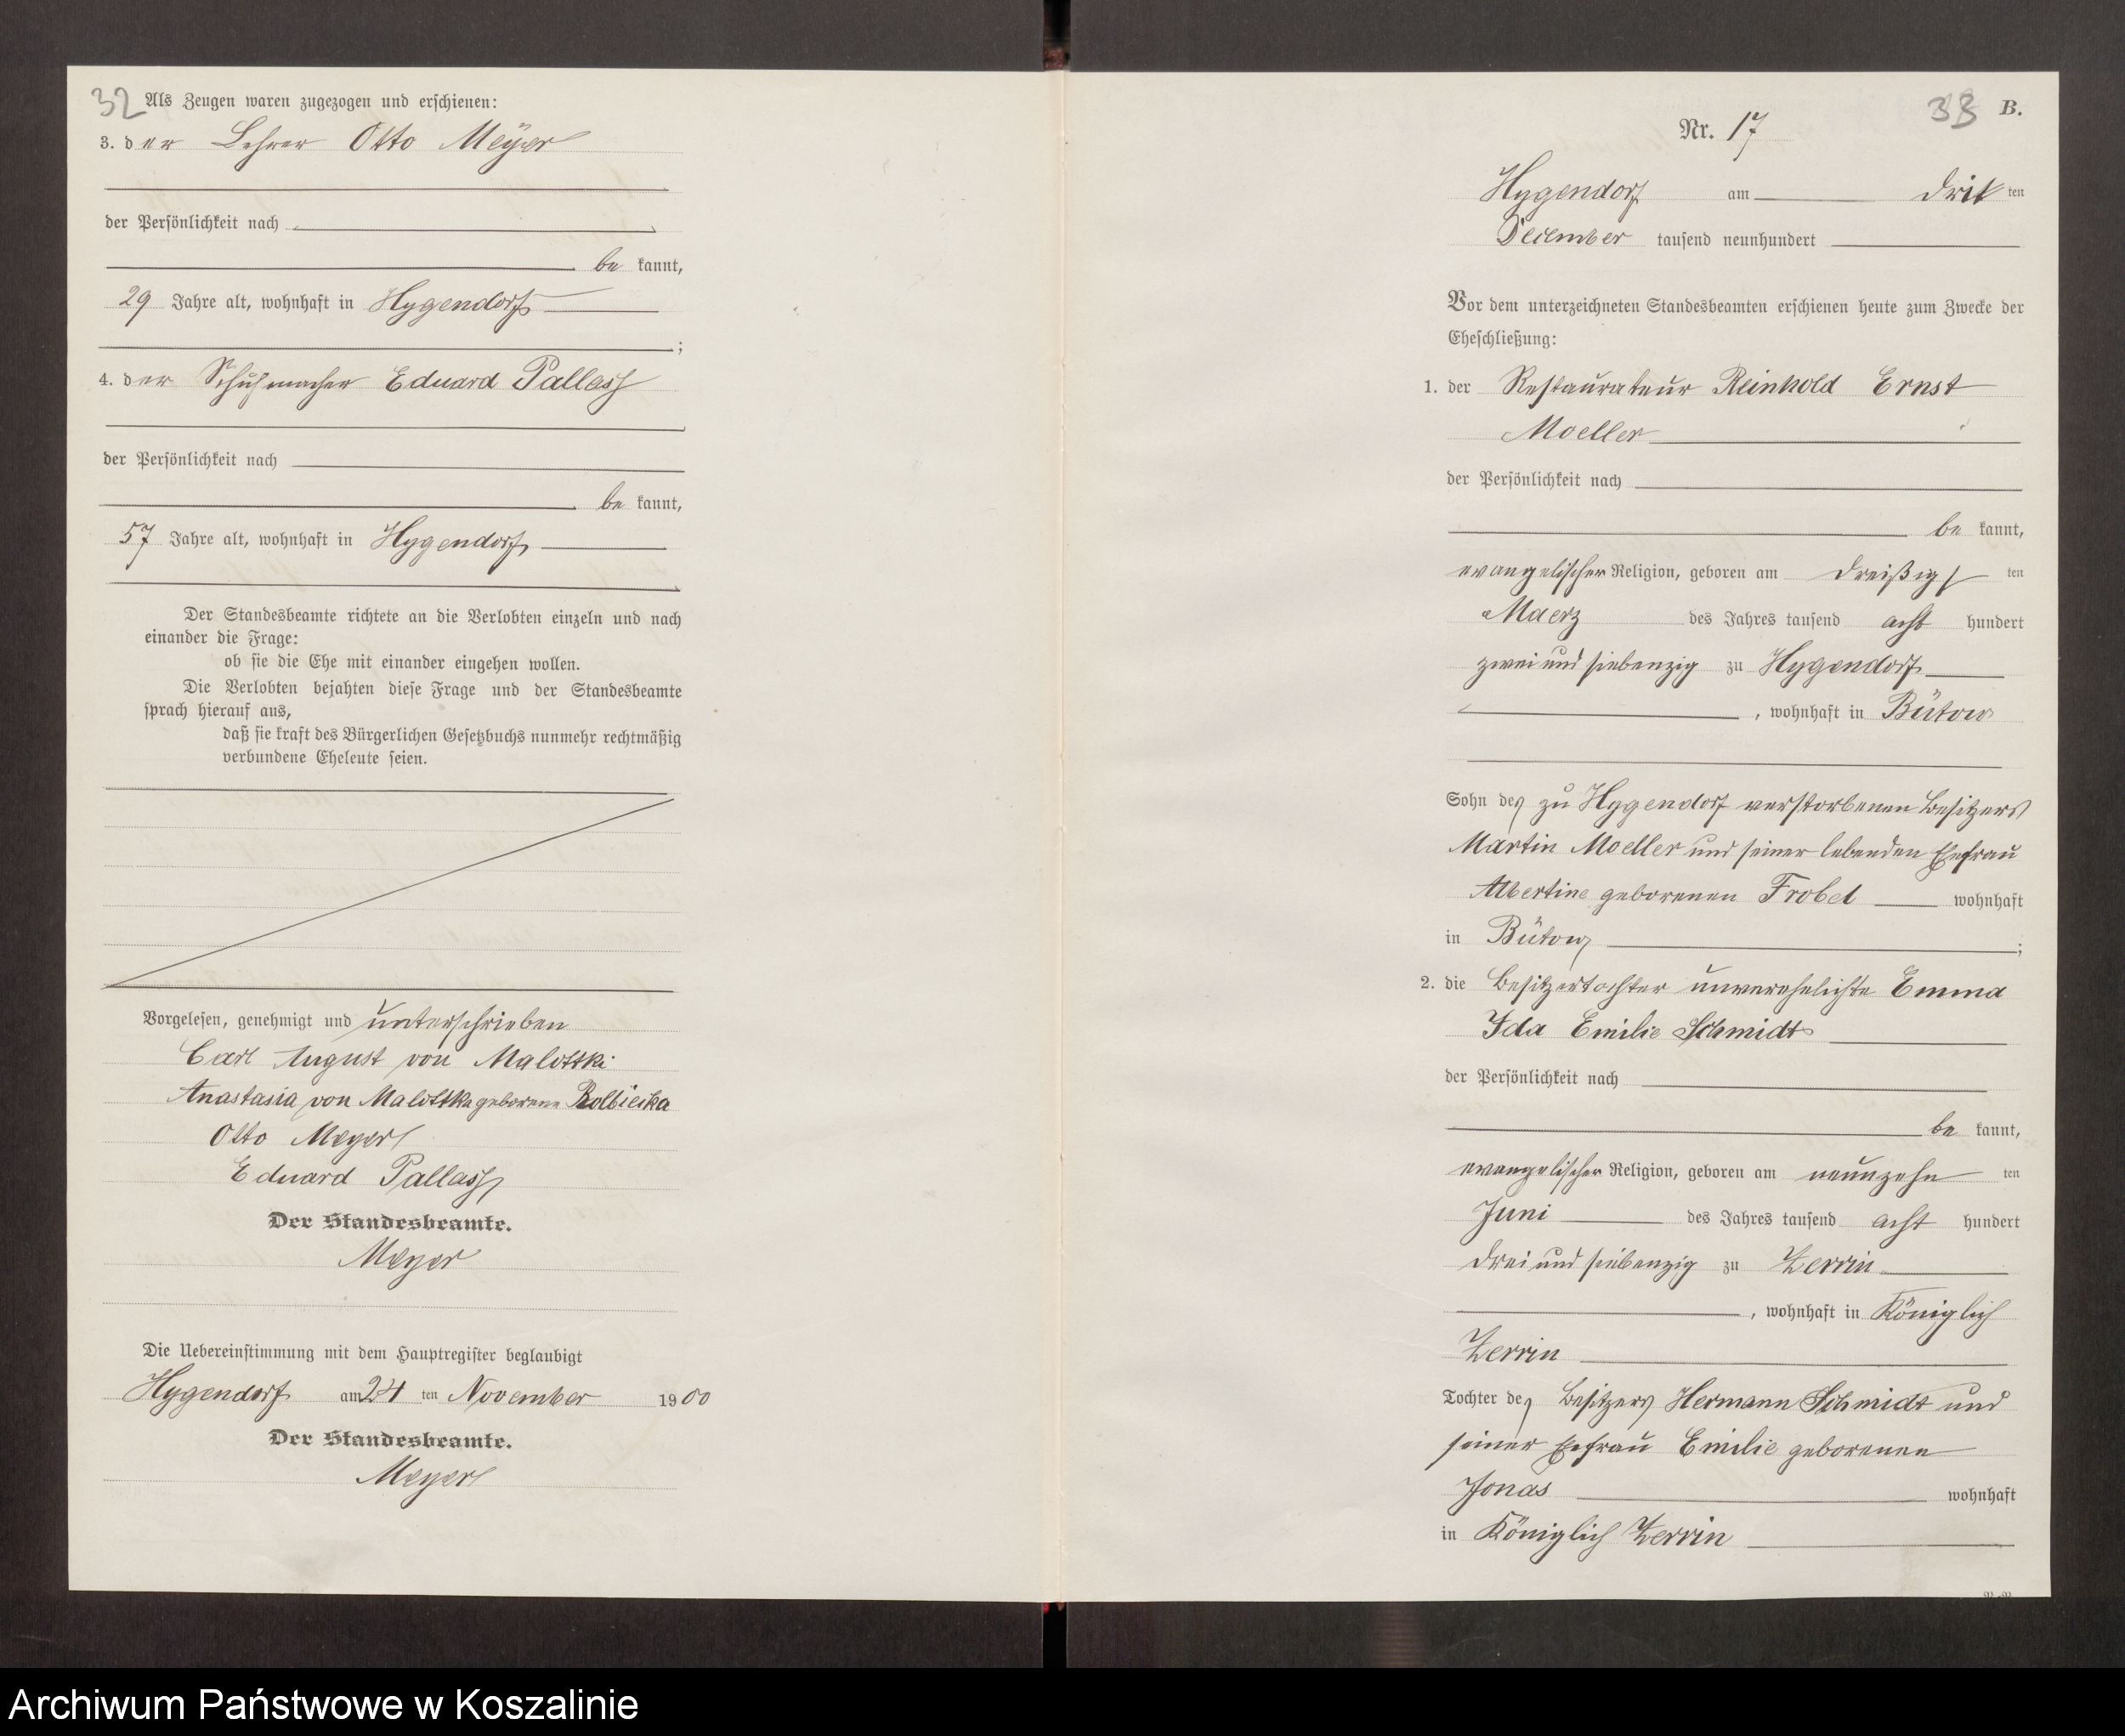 32
Als Zeugen waren zugezogen und erschienen:
3. der Lehrer Otto Meÿer
der Persönlichkeit nach
be kannt,
29 Jahre alt, wohnhaft in Hygendorf
;
4. der Schuhmacher Eduard Pallass
der Persönlichkeit nach
be kannt,
57 Jahre alt, wohnhaft in Hygendorf
Der Standesbeamte richtete an die Verlobten einzeln und nach
einander die Frage:
ob sie die Ehe mit einander eingehen wollen.
Die Verlobten bejahten diese Frage und der Standesbeamte
sprach hierauf aus,
daß sie kraft des Bürgerlichen Gesetzbuchs nunmehr rechtmäßig
verbundene Eheleute seien.
Vorgelesen, genehmigt und unterschrieben
Carl August von Malottki
Anastasia von Malottka geborene
Otto Meyer
Eduard Pallass
Der Standesbeamte.
Meyer
Die Uebereinstimmung mit dem Hauptregister beglaubigt
Hygendorf am 24 ten November 1900
Der Standesbeamte.
Meyer
33 B.
Nr. 17
Hygendorf am drit ten
December tausend neunhundert
Vor dem unterzeichneten Standesbeamten erschienen heute zum Zwecke der
Eheschließung:
1. der Restaurateur Reinhold Ernst
Moeller
der Persönlichkeit nach
be kannt,
evangelischer Religion, geboren am dreißigs ten
Maerz des Jahres tausend acht hundert
zwei und siebenzig zu Hygendorf
, wohnhaft in Bütow
Sohn des zu Hygendorf verstorbenen Besitzers
Martin Moeller und seiner lebenden Ehefrau
Albertine geborenen Frobel wohnhaft
in Bütow
;
2. die Besitzertochter unverehelichte Emma
Ida Emilie Schmidt
der Persönlichkeit nach
be kannt,
evangelischer Religion, geboren am neunzehn ten
Juni des Jahres tausend acht hundert
drei und siebenzig zu Zerrin
, wohnhaft in Königlich
Zerrin
Tochter des Besitzers Hermann Schmidt und
seiner Ehefrau Emilie geborenen
Jonas wohnhaft
in Königlich Zerrin
Archiwum Państwowe w Koszalinie